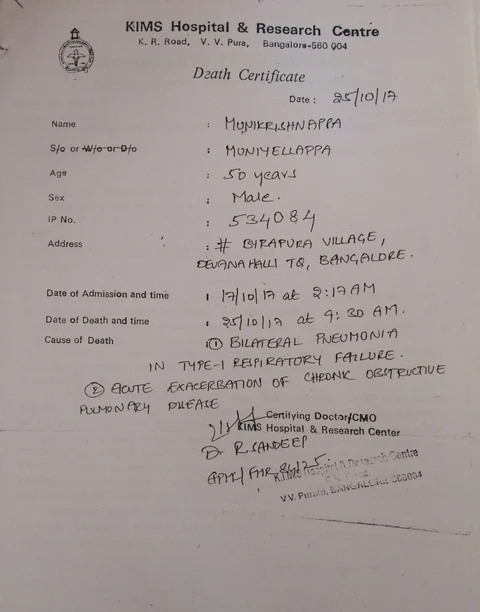 KIMS Hospital & Research Centre
K. R. Road, V. V. Pura, Bangalore-560 004
Death Certificate
Date : 25/10/17
Name : MUNIKRISHNAPPA
S/o or W/o or D/o : MUNIYELLAPPA
Age : 50 years
Sex : Male.
IP No. : 534084
Address : # BYRAPURA VILLAGE,
DEVANAHALLI TQ, BANGALORE.
Date of Admission and time : 17/10/17 at 2:17AM
Date of Death and time : 25/10/17 at 9:30 AM.
Cause of Death : ① BILATERAL PNEUMONIA
IN TYPE-1 RESPIRATORY FAILURE.
② ACUTE EXACERBATION OF CHRONIC OBSTRUCTIVE
PULMONARY DISEASE
Certifying Doctor/CMO
KIMS Hospital & Research Center
Dr R. SANDEEP
K.I.M.S Hospital & Research Centre
V.V. Puram, BANGALORE-560004